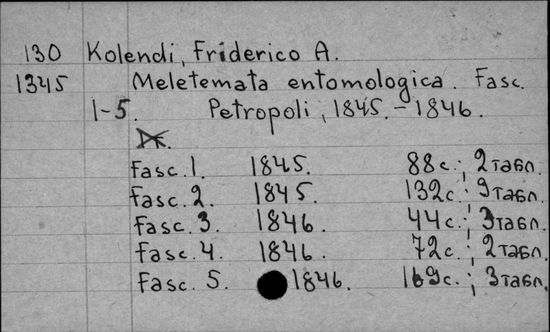 130 Kolendi, Friderico A.
1345 Meletemata entomologica. Fasc.
1-5. Petropoli, 1845.-1846.
Fasc. 1. 1845. 88с.; 2табл.
Fasc. 2. 1845. 132с.; 9табл.
Fasc. 3 1846. 44с.; 3табл.
Fasc. 4. 1846. 72с.; 2табл.
Fasc. 5. 1846. 169с.; 3табл.